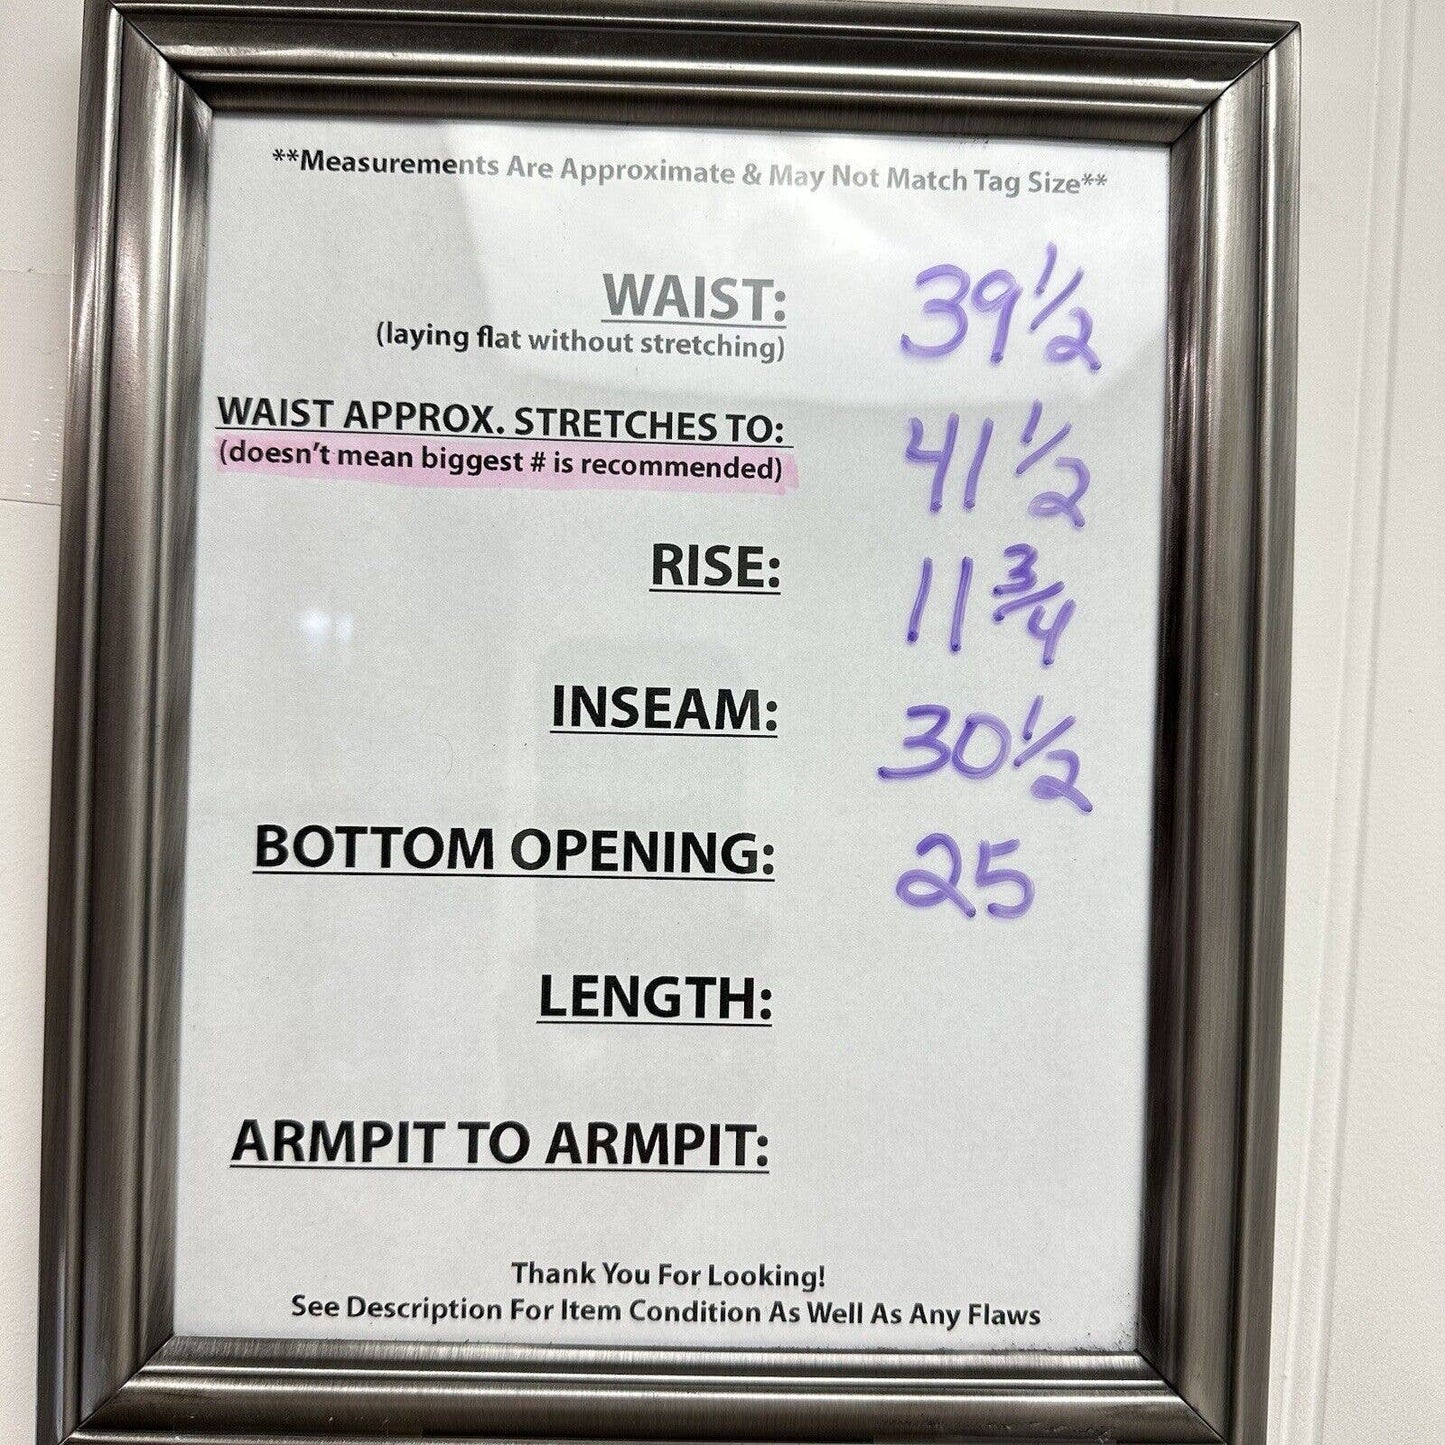 **Measurements Are Approximate & May Not Match Tag Size**
WAIST: 39 1/2
(laying flat without stretching)
WAIST APPROX. STRETCHES TO: 41 1/2
(doesn't mean biggest # is recommended)
RISE: 11 3/4
INSEAM: 30 1/2
BOTTOM OPENING: 25
LENGTH:
ARMPIT TO ARMPIT:
Thank You For Looking!
See Description For Item Condition As Well As Any Flaws